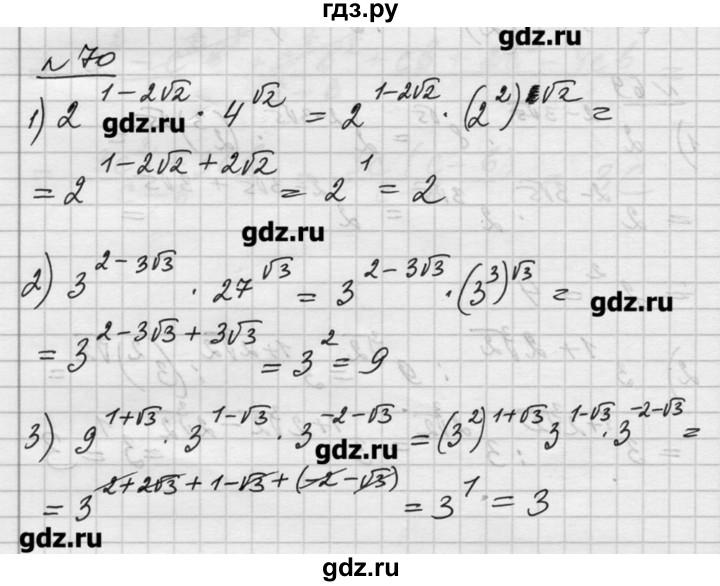 гдз.ру
gdz.ru
№ 70
1) 2^(1-2√2) · 4^(√2) = 2^(1-2√2) · (2^2)^(√2) =
gdz.ru
= 2^(1-2√2+2√2) = 2^1 = 2
gdz.ru
2) 3^(2-3√3) · 27^(√3) = 3^(2-3√3) · (3^3)^(√3) =
gdz.ru
= 3^(2-3√3+3√3) = 3^2 = 9
3) 9^(1+√3) · 3^(1-√3) · 3^(-2-√3) = (3^2)^(1+√3) 3^(1-√3) · 3^(-2-√3) =
gdz.ru
= 3^(2+2√3+1-√3+(-2-√3)) = 3^1 = 3
gdz.ru
gdz.ru